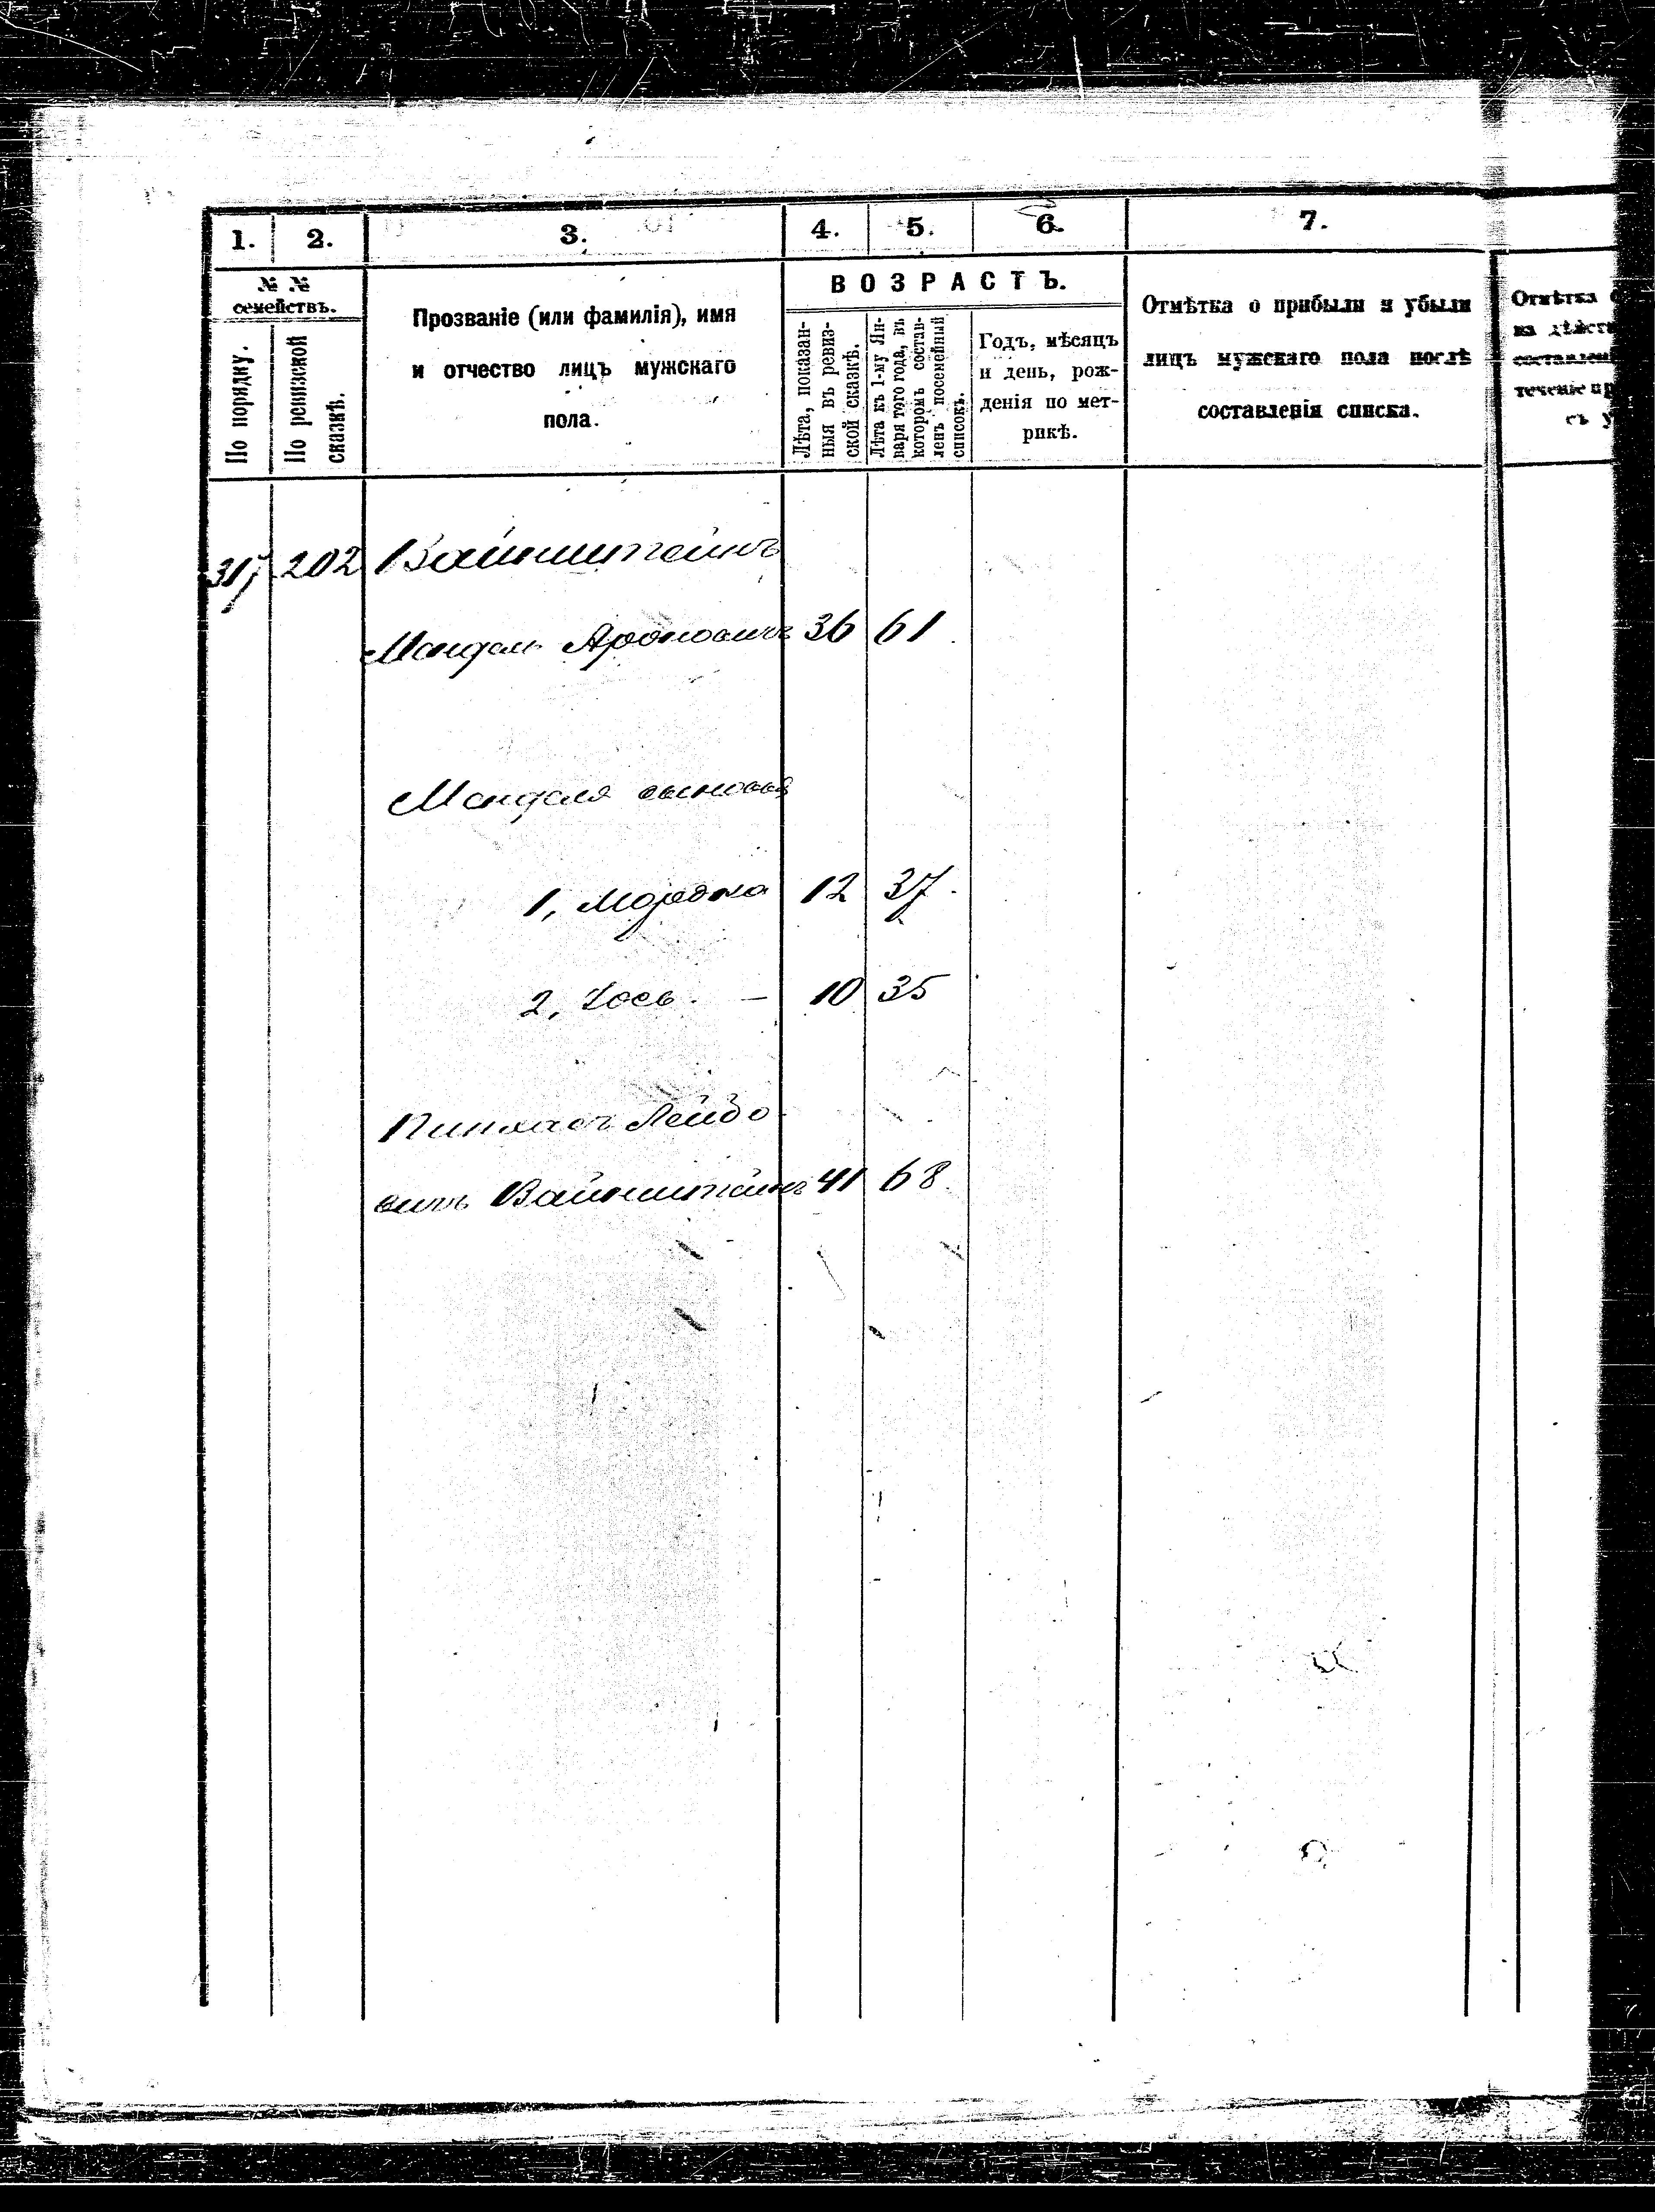 1. 2. 3. 4. 5. 6. 7.
№ №
семействъ.
По порядку.
По ревизской
сказкѣ.
Прозваніе (или фамилія), имя
и отчество лицъ мужскаго
пола.
ВОЗРАСТЪ.
Лѣта, показан-
ныя въ ревиз-
ской сказкѣ.
Лѣта къ 1-му Ян-
варя того года, въ
которомъ состав-
ленъ посемейный
списокъ.
Годъ, мѣсяцъ
и день, рож-
денія по мет-
рикѣ.
Отмѣтка о прибыли и убыли
лицъ мужскаго пола послѣ
составленія списка.
Отмѣтка
на
съ
317 202 Вайнштейнъ
Мандель Ароновичъ 36 61
Манделя сыновья
1, Мордко 12 37
2, Іось. — 10 35
Пинхасъ Лейбо-
вичъ Вайнштейнъ 41 68